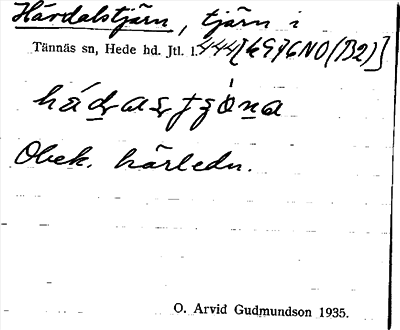 Härdalstjärn, tjärn i
Tännäs sn, Hede hd. Jtl. l. 444 [697 6 NO (B2)]
Obek. härledn.
O. Arvid Gudmundson 1935.